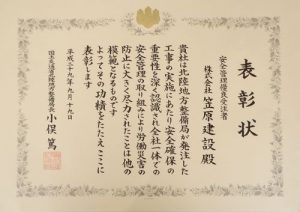 表彰状
安全管理優良受注者
株式会社 笠原建設殿
貴社は北陸地方整備局が発注した
工事の実施にあたり安全確保の
重要性を深く認識され全社一体での
安全管理の取り組みにより労働災害の
防止に大きく尽力されたことは他の
模範となるものです
よってその功績をたたえここに
表彰します
平成二十九年九月十九日
国土交通省北陸地方整備局長 小俣篤